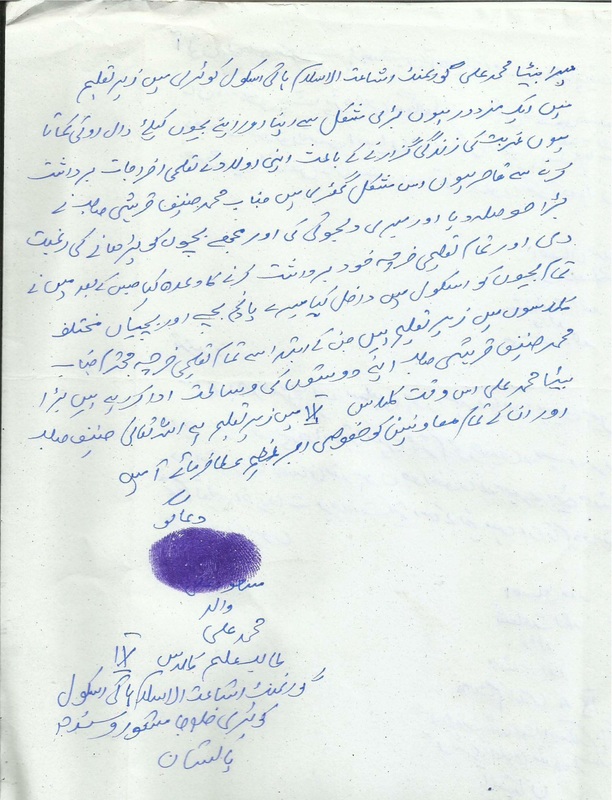 میرا بیٹا محمد علی گورنمنٹ اشاعت الاسلام ہائی اسکول کوٹری میں زیر تعلیم
میں ایک مزدور ہوں بڑی مشکل سے اپنا اور اپنے بچوں کیلئے دال روٹی کماتا
ہوں غربت کی زندگی گزارنے کے باعث اپنی اولاد کے تعلمی اخراجات برداشت
کرنے سے قاصر ہوں اس مشکل گھڑی میں جناب محمد حنیف قریشی صاحب نے
بڑا حوصلہ دیا اور میری دلجوئی کی اور مجھے بچوں کو پڑھانے کی رغبت
دی اور تمام تعلیمی خرچہ خود برداشت کرنے کا وعدہ کیا جس کے بعد میں نے
تمام بچوں کو اسکول میں داخل کیا میرے پانچ بچے اور بچیاں مختلف
کلاسوں میں زیر تعلیم ہیں جن کے ابتدا سے تمام تعلیمی خرچہ محترم جناب
محمد حنیف قریشی صاحب اپنے دوستوں کی وساطت ادا کر رہے ہیں بڑا
بیٹا محمد علی اس وقت کلاس IX میں زیر تعلیم ہے اللہ تعالی حنیف صاحب
اور ان کے تمام معاونین کو خصوصی اجر عظیم عطا فرمائے آمین
دعا گو
والد
محمد علی
طالب علم کلاس IX
گورنمنٹ اشاعت الاسلام ہائی اسکول
کوٹری ضلع جامشورو سندھ
پاکستان